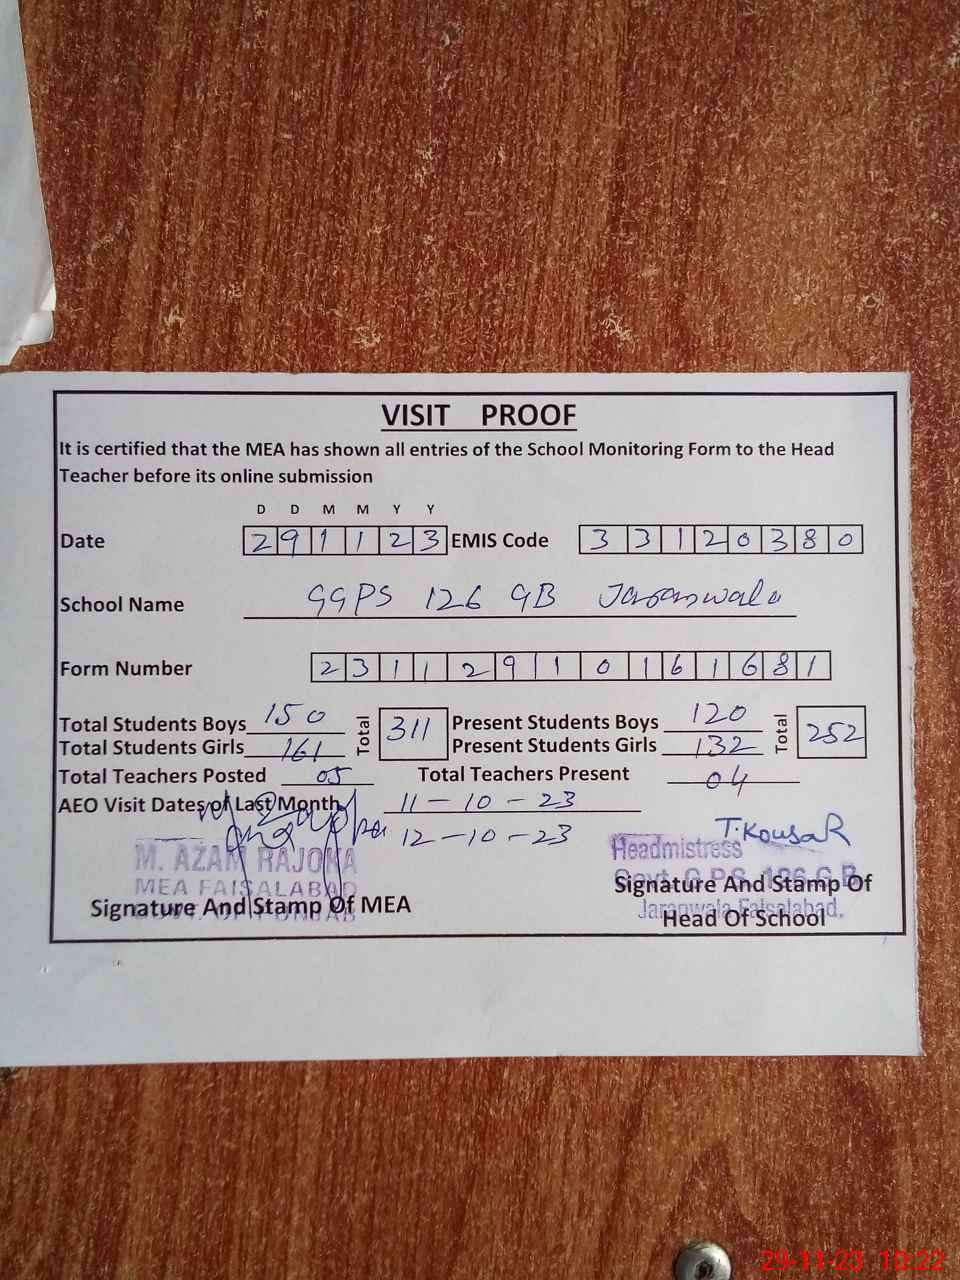 VISIT PROOF
It is certified that the MEA has shown all entries of the School Monitoring Form to the Head
Teacher before its online submission
D D M M Y Y
Date 2 9 1 1 2 3 EMIS Code 3 3 1 2 0 3 8 0
School Name GGPS 126 GB Jaranwala
Form Number 2 3 1 1 2 9 1 0 1 6 1 6 8 1
Total Students Boys 150 Total 311 Present Students Boys 120 Total 252
Total Students Girls 161 Present Students Girls 132
Total Teachers Posted 05 Total Teachers Present 04
AEO Visit Dates of Last Month 11-10-23
12-10-23
T. KousaR
M. AZAM RAJOKA
MEA FAISALABAD
GOVT. OF PUNJAB
Signature And Stamp Of MEA
Headmistress
Govt. G.P.S. 126 G.B
Jaranwala Faisalabad.
Signature And Stamp Of
Head Of School
29-11-23 10:22